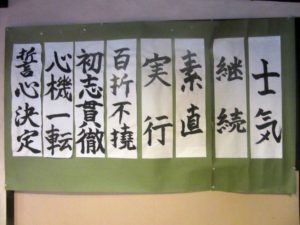 士気
継続
素直
実行
百折不撓
初志貫徹
心機一転
誓心決定